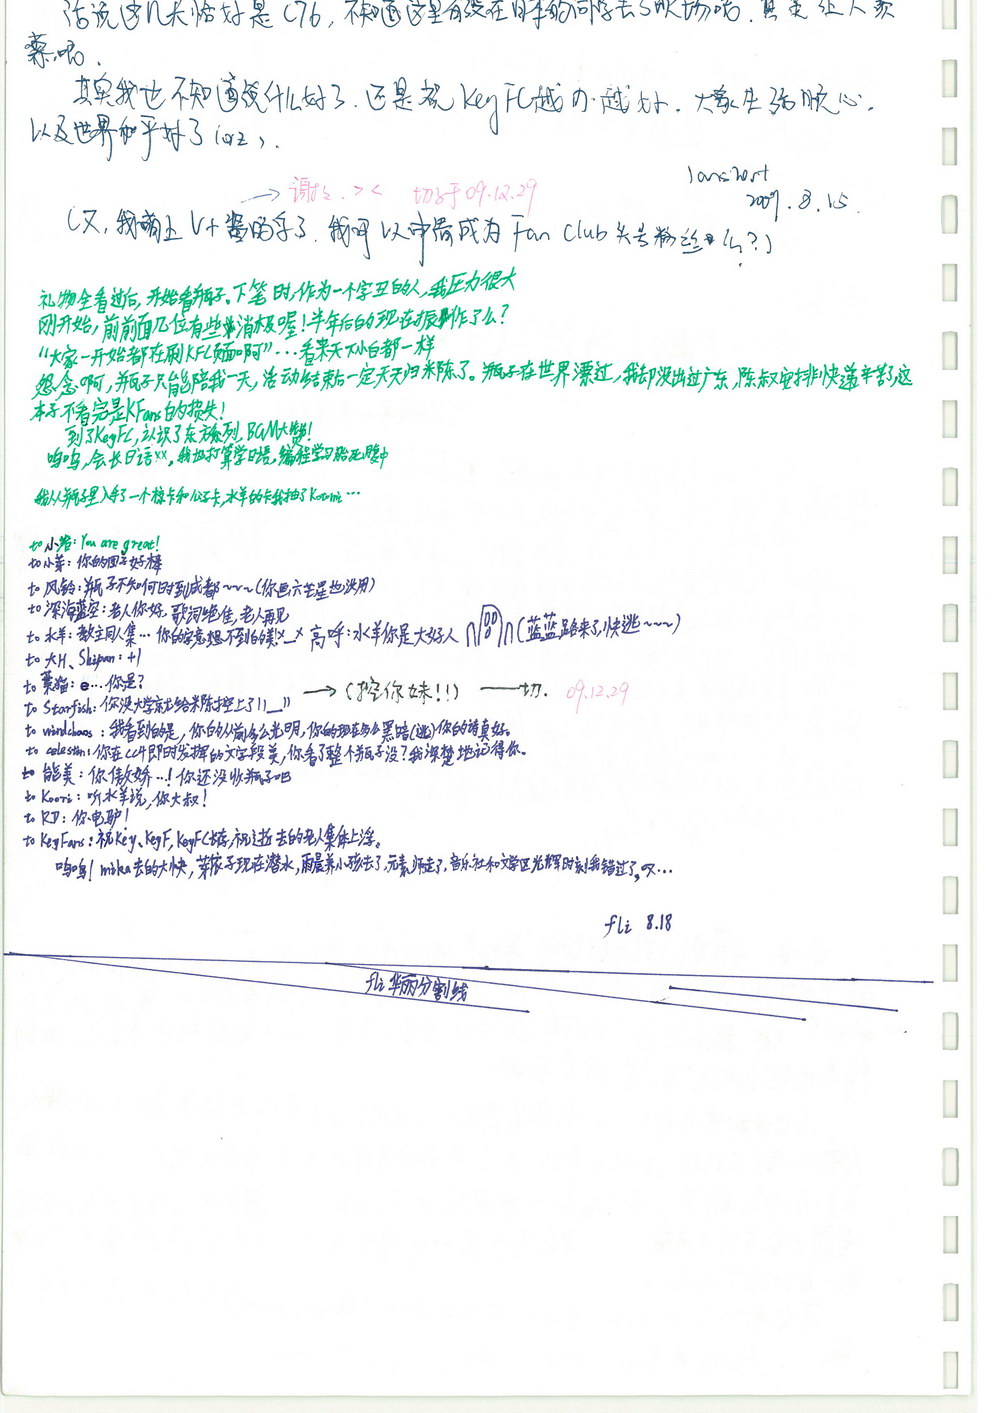 话说这几天恰好是C76, 不知道这里有没有在日本的同学去了现场呢. 真是让人羡
慕呢.
其实我也不知道说什么好了. 还是祝KeyFC越办越好. 大家生活顺心.
以及世界和平好了(orz).
2009.8.15
→ 谢谢. >< 切子于09.12.29
(又, 我萌上V+酱的字了. 我可以申请成为Fan Club头号粉丝么?)
礼物全看过后,开始看瓶子。下笔时,作为一个字丑的人,我压力很大
刚开始,前前面几位有些消极喔!半年后的现在振作了么?
“大家一开始都在刷KFC页面啊”…看来天下小白都一样
怨念啊,瓶子只能陪我一天,活动结束后一定天天归米陈了。瓶子在世界漂过,我却没出过广东,陈叔安排快递辛苦了,这
本子不看完是KFans的损失!
到了KeyFC,认识了东方系列,BGM大赞!
呜呜,会长日语xx,我也打算学日语,编程学习胎死腹中
我从瓶子里入手了一个棕卡和公子卡,水羊的卡我抽了Koori…
to 小岩: You are great!
to 小羊: 你的图好棒
to 风铃: 瓶子不知何时到成都~~~(你画六芒星也没用)
to 深海蓝空: 老人你好, 歌词绝佳, 老人再见
to 水羊: 教主同人集… 你的字意想不到的美x_x 高呼:水羊你是大好人 (蓝蓝路来了,快逃~~~)
to 大H、Shipan: +1
to 叶猫: e…你是?
→ (控你妹!!) ——切. 09.12.29
to Starfish: 你没大学就给米陈控上了!!__!!
to windchaos: 我看到的是,你的以前多么光明,你的现在多么黑暗(逃)你的诗真好。
to celesian: 你在CC4即时发挥的文字段美,你看了整个瓶子没?我深楚地记得你。
to 能美: 你傲娇…!你还没收瓶子吧
to Koori: 听水羊说,你大叔!
to RD: 你电驴!
to KeyFans: 祝Key、KeyF, KeyFC长存,祝逝去的老人集体上浮。
呜呜! mika去的太快,芽依子现在潜水,雨晨养小孩去了,元素师走了,音乐社和文学区光辉时刻我错过了,叹…
fli 8.18
fli华丽分割线